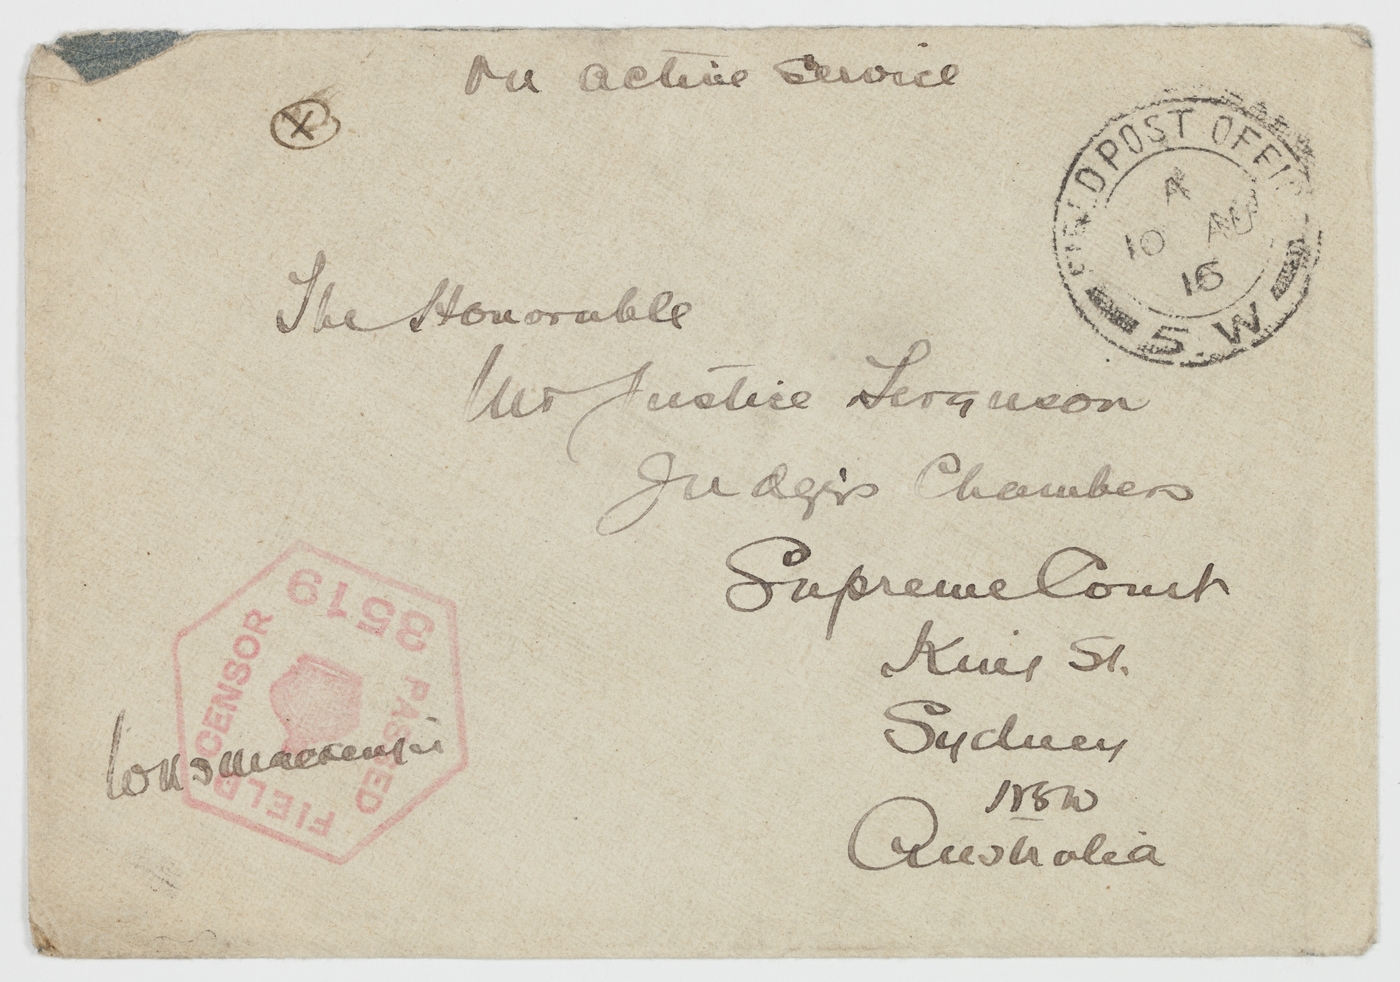 On active service
X
FIELD POST OFFIC
A
10 AU
16
5.W
The Honorable
Mr Justice Ferguson
Judges Chambers
Supreme Court
King St.
Sydney
NSW
Australia
PASSED FIELD CENSOR
3519
Mackenzie